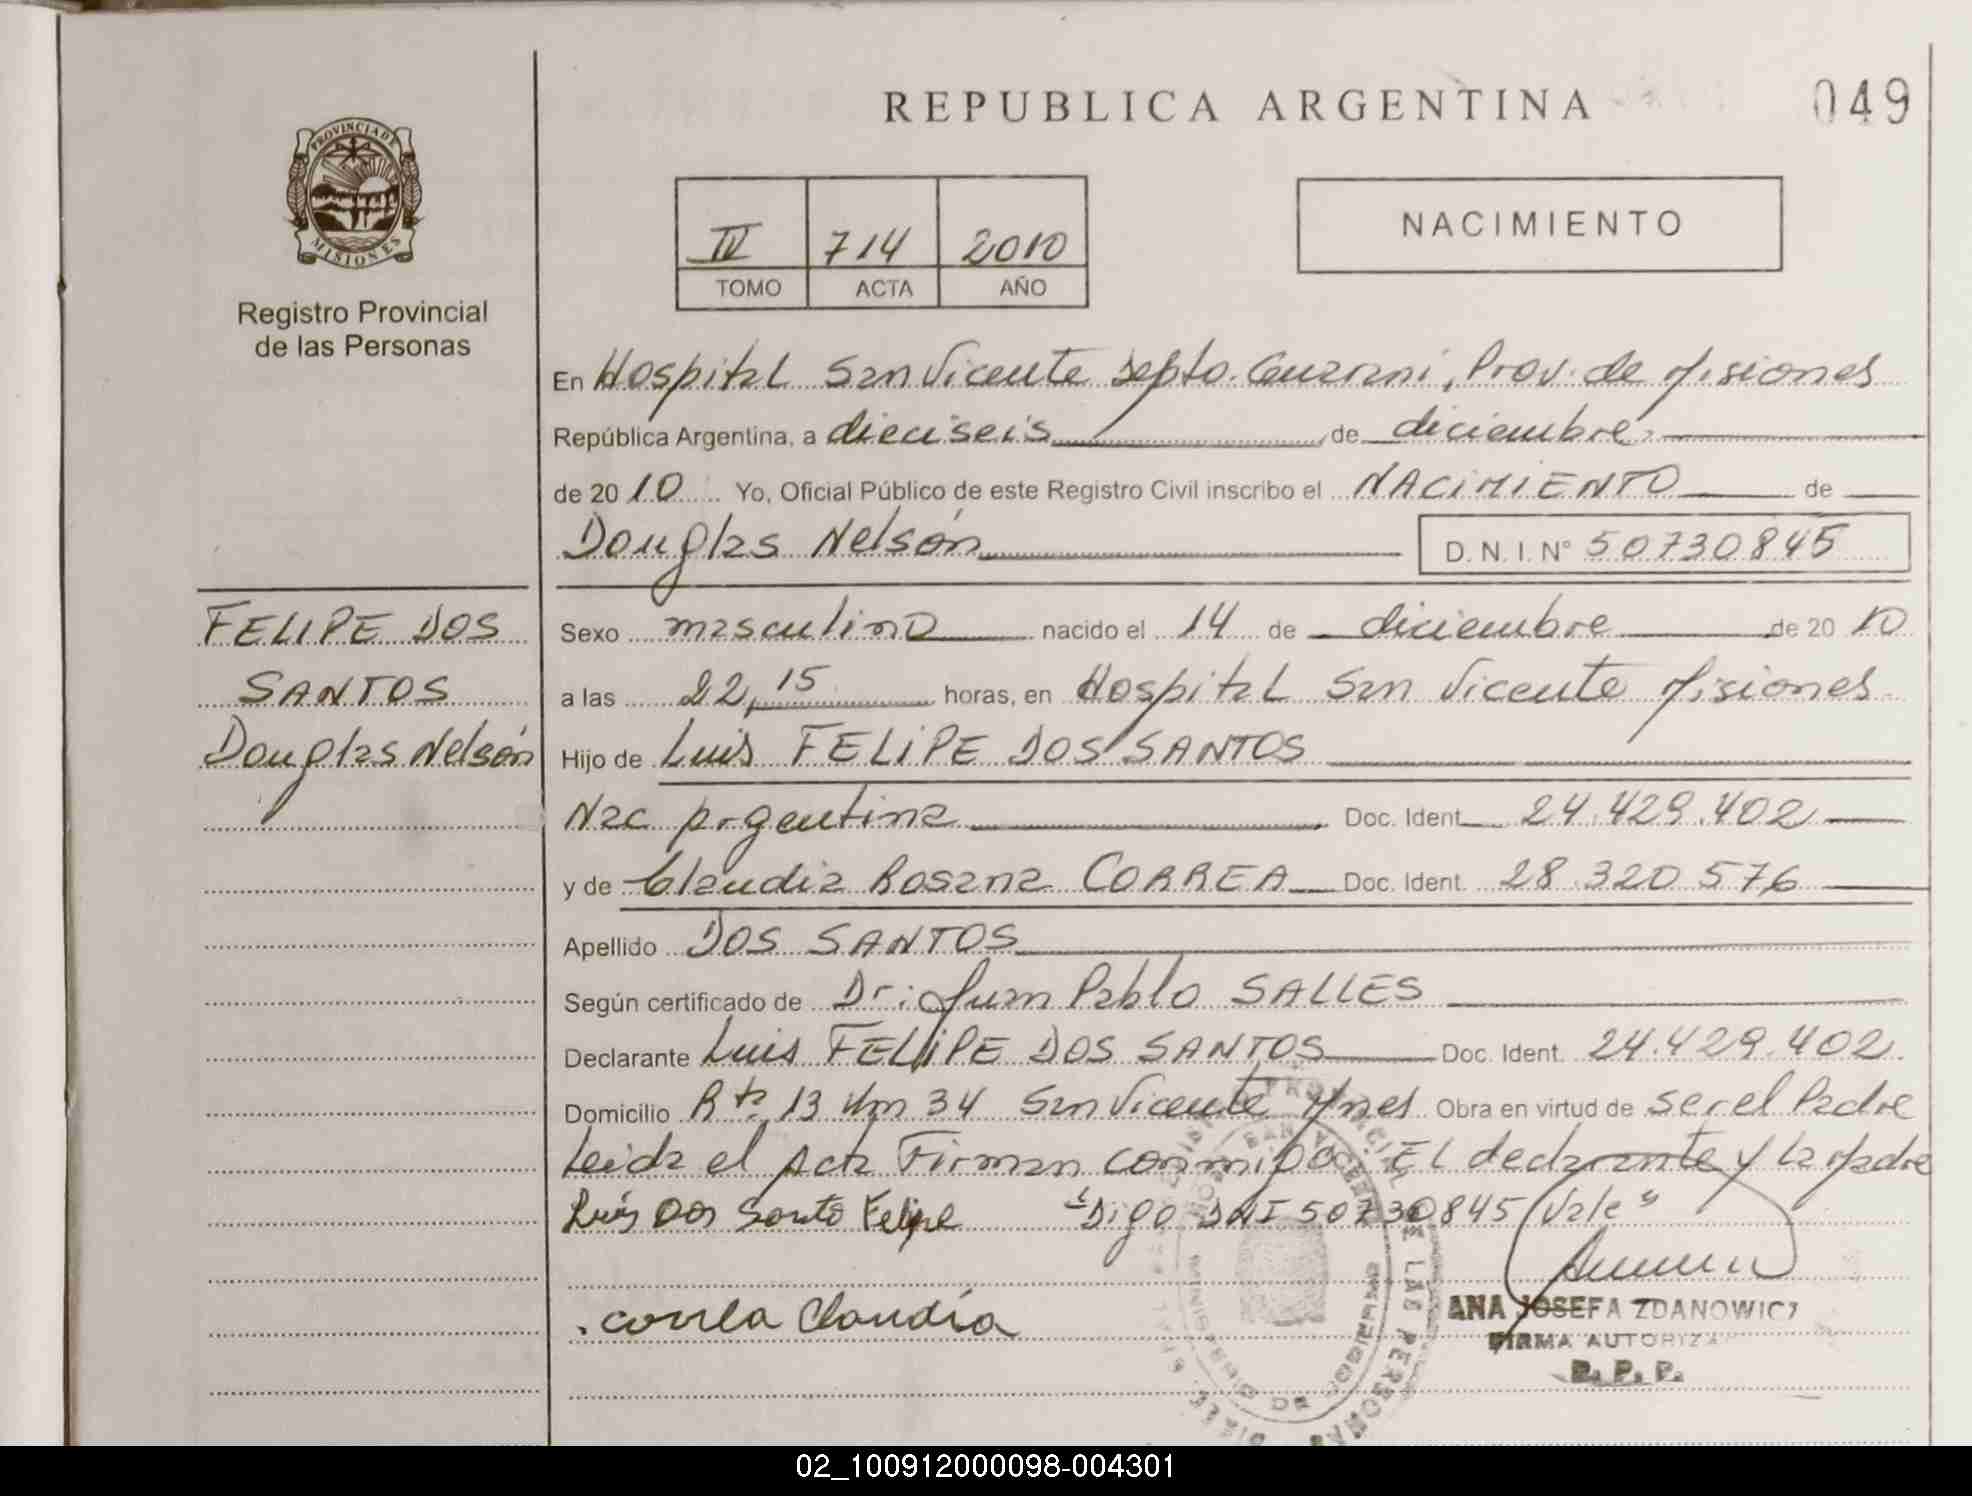 REPUBLICA ARGENTINA
049
PROVINCIA DE
MISIONES
Registro Provincial
de las Personas
IV 714 2010
TOMO ACTA AÑO
NACIMIENTO
En Hospital San Vicente Depto. Guarani, Prov. de Misiones
República Argentina, a dieciseis de diciembre
de 2010 Yo, Oficial Público de este Registro Civil inscribo el NACIMIENTO de
Douglas Nelsón D.N.I. N° 50730845
FELIPE DOS
SANTOS
Douglas Nelsón
Sexo masculino nacido el 14 de diciembre de 2010
a las 22,15 horas, en Hospital San Vicente Misiones
Hijo de Luis FELIPE DOS SANTOS
Nac Argentina Doc. Ident. 24.429.402
y de Claudia Rosana CORREA Doc. Ident. 28.320.576
Apellido DOS SANTOS
Según certificado de Dr: Juan Pablo SALLES
Declarante Luis FELIPE DOS SANTOS Doc. Ident. 24.429.402
Domicilio Rta 13 Km 34 San Vicente Mnes Obra en virtud de ser el Padre
Leida el Acta Firman conmigo El declarante y La Madre
Luis Dos Santo Felipe "Digo DNI 50730845 Vale"
.correa Claudia
ANA JOSEFA ZDANOWICZ
FIRMA AUTORIZA
R. P. P.
02_100912000098-004301